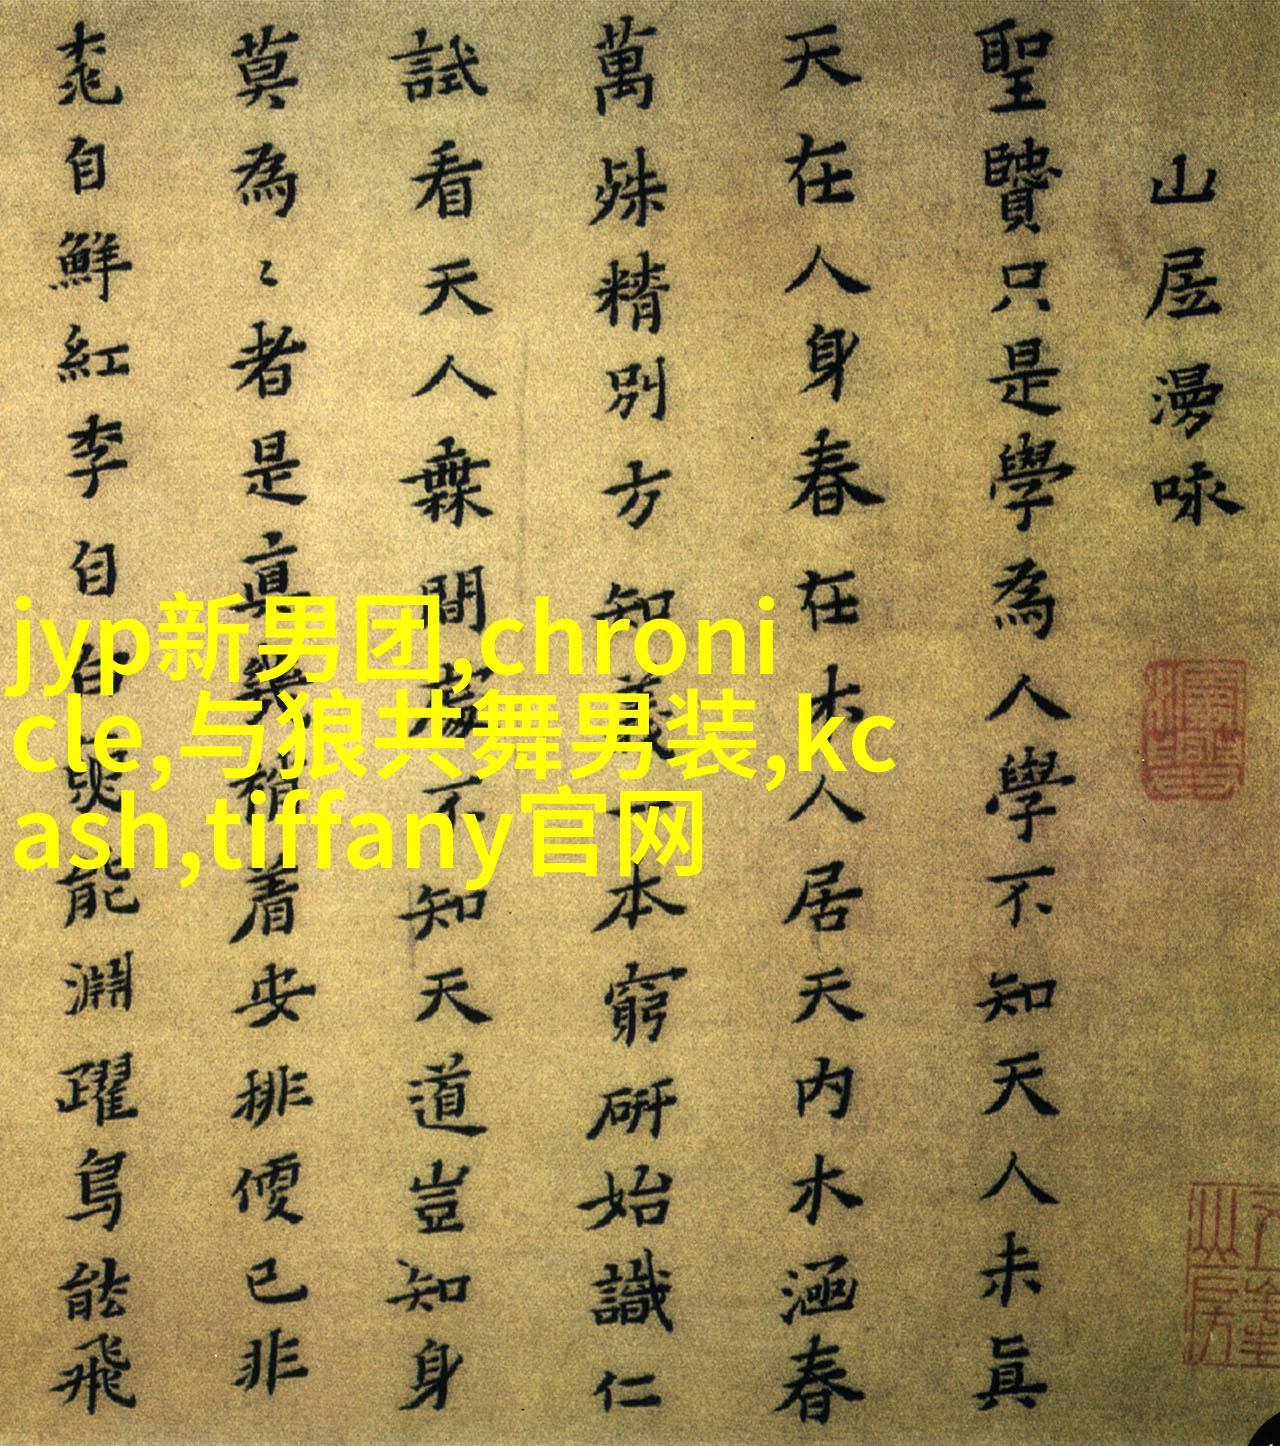 山居漫咏
聖贒只是學為人學不知天人未眞
天在人身春在木人居天内木涵春
萬殊精別方知義一本窮研始識仁
試看天人無間處不知天道豈知身
莫為〻者是眞幾稍着安排便已非
桃自鮮紅李自白魚能淵躍鳥能飛
jyp新男团,chroni
cle,与狼共舞男装,kc
ash,tiffany官网